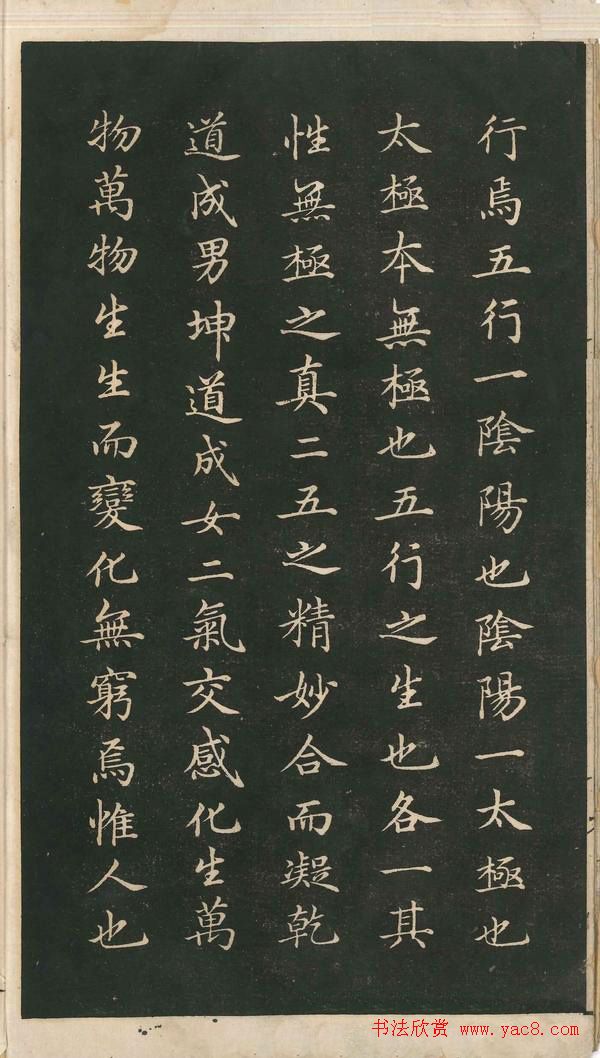 行焉五行一陰陽也陰陽一太極也
太極本無極也五行之生也各一其
性無極之真二五之精妙合而凝乾
道成男坤道成女二氣交感化生萬
物萬物生生而變化無窮焉惟人也
书法欣赏 www.yac8.com